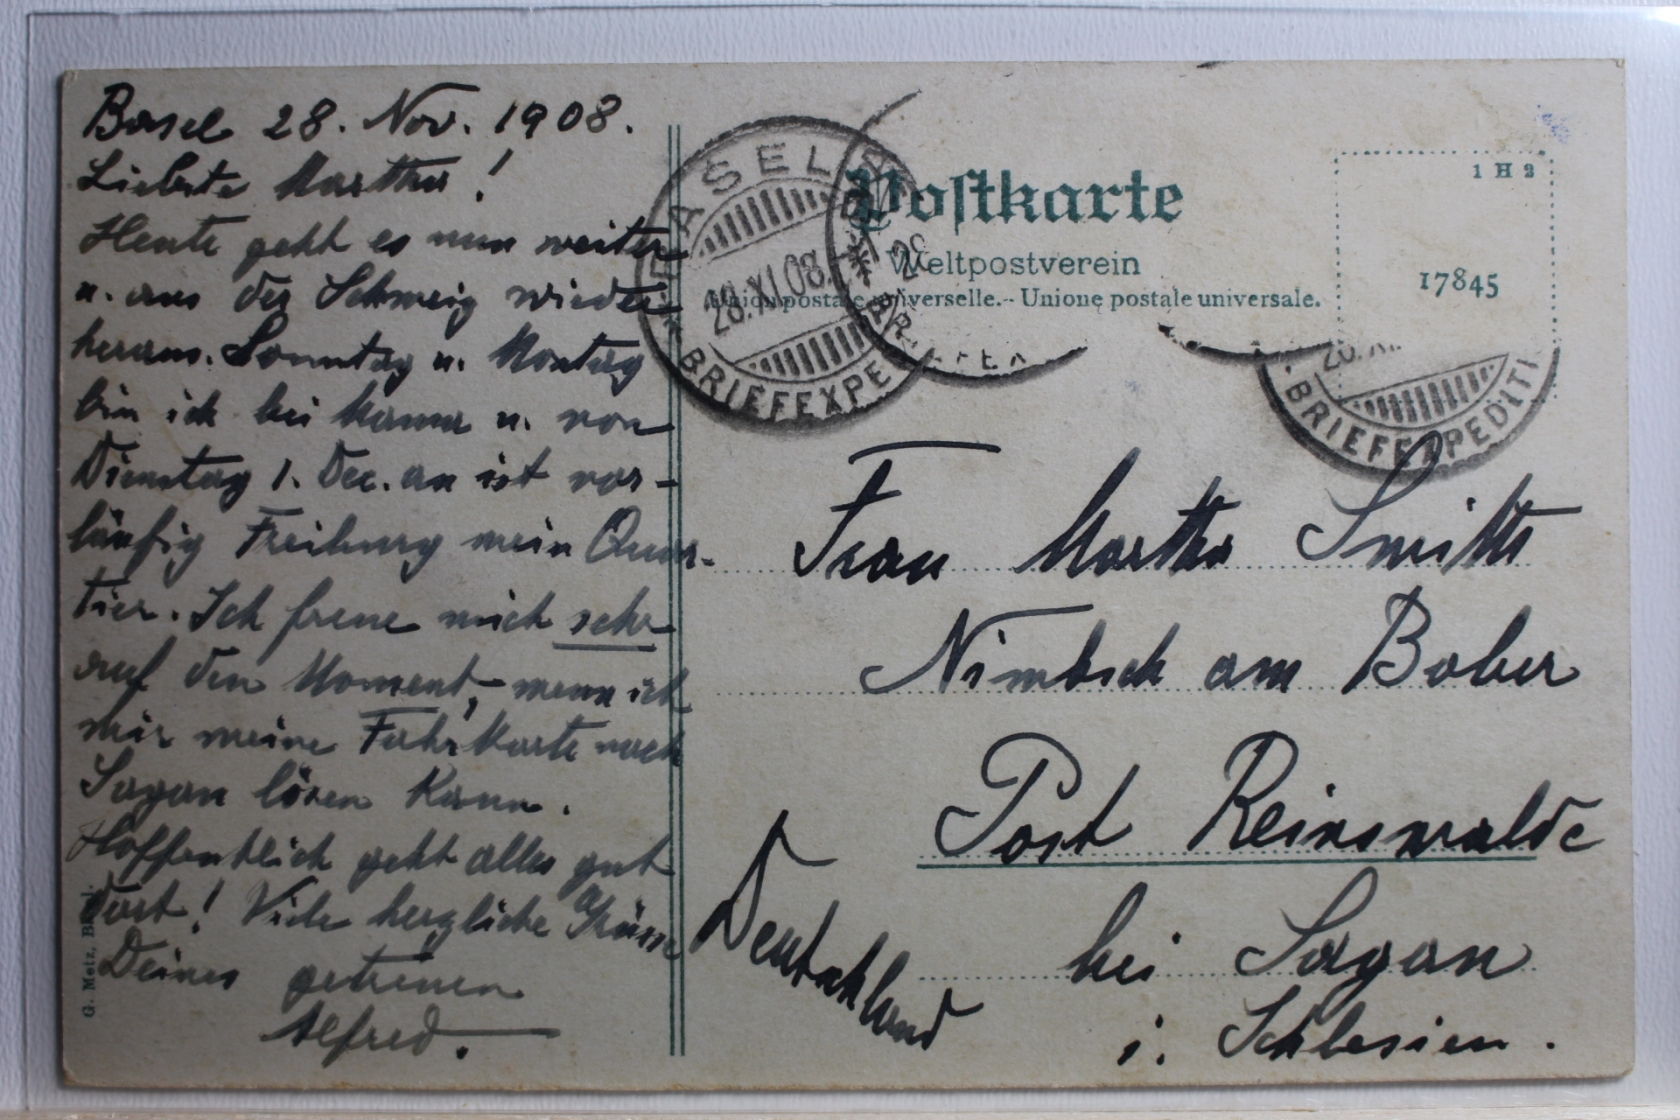 Basel 28. Nov. 1908.
Liebste Martha!
Heute geht es nun weiter
u. aus der Schweiz wieder
heraus. Sonntag u. Montag
bin ich bei Mama u. von
Dienstag 1. Dec. an ist vor-
läufig Freiburg mein Quar-
tier. Ich freue mich sehr
auf den Moment, wenn ich
mir meine Fahrkarte nach
Sagan lösen kann.
Hoffentlich geht alles gut
dort! Viele herzliche Grüsse
Deines getreuen
Alfred.
G. Metz, Basel.
BASEL
28.XI.08.
BRIEFEXPE
28
BRIEFEXPEDITI
Postkarte
Weltpostverein
Union postale universelle.-- Unione postale universale.
1 H 2
17845
Frau Martha Smitts
Nimbsch am Bober
Post Reinswalde
bei Sagan
i. Schlesien.
Deutschland